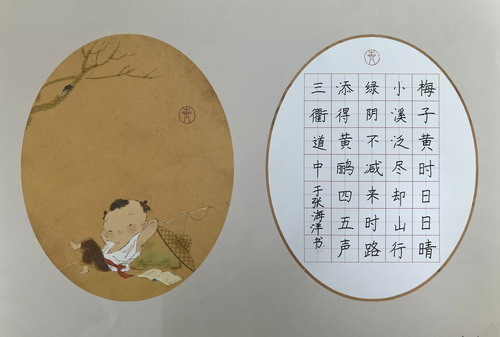 梅子黄时日日晴
小溪泛尽却山行
绿阴不减来时路
添得黄鹂四五声
三衢道中 于张海洋书